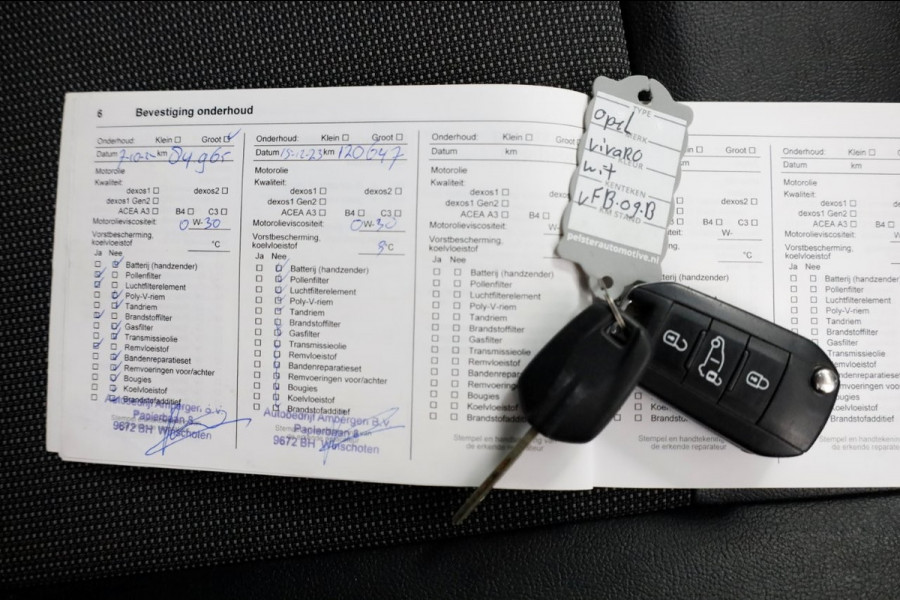 6 Bevestiging onderhoud
Onderhoud: Klein Groot
Datum km
Motorolie
Kwaliteit:
dexos1 dexos2
dexos1 Gen2
ACEA A3 B4 C3
Motorolieviscositeit: 0 W- 30
Vorstbescherming, koelvloeistof °C
Ja Nee
Batterij (handzender)
Pollenfilter
Luchtfilterelement
Poly-V-riem
Tandriem
Brandstoffilter
Gasfilter
Transmissieolie
Remvloeistof
Bandenreparatieset
Remvoeringen voor/achter
Bougies
Koelvloeistof
Brandstofadditief
Autobedrijf Ampergen B.V.
Papierbaan 8
9672 BH Winschoten
Onderhoud: Klein Groot
Datum 15-12-23 km 120647
Motorolie
Kwaliteit:
dexos1 dexos2
dexos1 Gen2
ACEA A3 B4 C3
Motorolieviscositeit: 0 W- 30
Vorstbescherming, koelvloeistof °C
Ja Nee
Batterij (handzender)
Pollenfilter
Luchtfilterelement
Poly-V-riem
Tandriem
Brandstoffilter
Gasfilter
Transmissieolie
Remvloeistof
Bandenreparatieset
Remvoeringen voor/achter
Bougies
Koelvloeistof
Brandstofadditief
Autobedrijf Ampergen B.V.
Papierbaan 8
9672 BH Winschoten
Onderhoud: Klein
Datum km
Motorolie
Kwaliteit:
dexos1
dexos1 Gen2
ACEA A3 B4
Motorolieviscositeit:
Vorstbescherming, koelvloeistof
Ja Nee
Batterij (handzender)
Pollenfilter
Luchtfilterelement
Poly-V-riem
Tandriem
Brandstoffilter
Gasfilter
Transmissieolie
Remvloeistof
Bandenreparatieset
Remvoeringen
Bougies
Koelvloeistof
Brandstofadditief
Stempel en handtekening van
de erkende reparateur
TYPE
Opel
MERK
Vivaro
KLEUR
wit
KENTEKEN
VFB.09.B
KM STAND
pelsterautomotive.nl
Groot
dexos2
B4 C3
W-
°C
(handzender)
Stempel en handtekening
de erkende reparateur
Onderhoud: Klein
Datum km
Motorolie
Kwaliteit:
dexos1
dexos1 Gen2
ACEA A3
Motorolieviscositeit:
Vorstbescherming, koelvloeistof
Ja Nee
Batterij (handzender)
Pollenfilter
Luchtfilterelement
Poly-V-riem
Tandriem
Brandstoffilter
Gasfilter
Transmissieolie
Remvloeistof
Bandenreparatieset
Bougies
Koelvloeistof
Brandstofadditief
Stempel en handtekening
de erkende reparateur